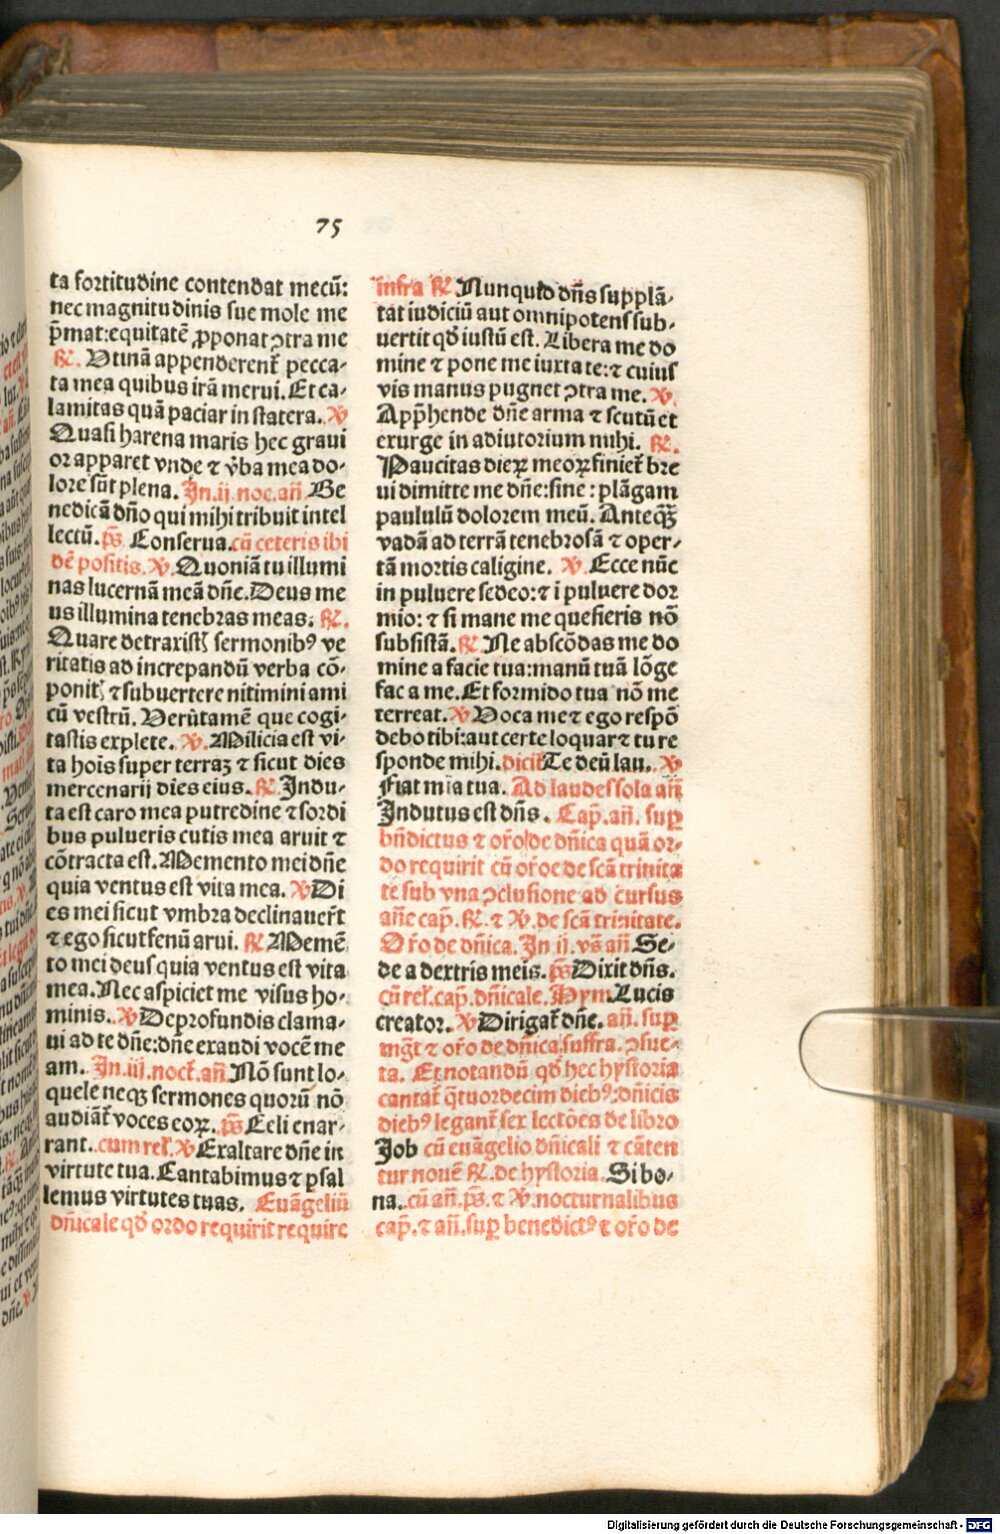 75
ta fortitudine contendat mecū:
nec magnitudinis sue mole me
p̄mat: equitatē ꝓponat ↄtra me
℟. Vtinā appenderent᷑ pecca-
ta mea quibus irā merui. Et ca-
lamitas quā paciar in statera. ℣
Quasi harena maris hec graui
or apparet vnde ⁊ v̓ba mea do-
lore sūt plena. In .ij noc. añ. Be
nedicā dño qui mihi tribuit intel
lectū. p̄s Conserua. cū ceteris ibi
dē positis. ℣. Quoniā tu illumi
nas lucernā meā dñe. Deus me
us illumina tenebras meas. ℟.
Quare detraxist᷑ sermonibꝰ ve
ritatis ad increpandū verba cō-
ponit᷑ ⁊ subuertere nitimini ami
cū vestrū. Verūtamē que cogi-
tastis explete. ℣. Milicia est vi-
ta hoīs super terraꝫ ⁊ sicut dies
mercenarij dies eius. ℟. Indu-
ta est caro mea putredine ⁊ sordi
bus pulueris cutis mea aruit ⁊
cōtracta est. Memento mei dñe
quia ventus est vita mea. ℣ Di
es mei sicut vmbra declinauer̄t
⁊ ego sicut fenū arui. ℟ Memē
to mei deus quia ventus est vita
mea. Nec aspiciet me visus ho-
minis. ℣ De profundis clama-
ui ad te dñe: dñe exaudi vocē me
am. In .iij. noct᷑. añ. Nō sunt lo-
quele neqꝫ sermones quorū nō
audiāt᷑ voces eoꝝ. p̄s Celi enar-
rant. cum rel᷑. ℣ Exaltare dñe in
virtute tua. Cantabimus ⁊ psal
lemus virtutes tuas. Euāgeliū
dñicale qd̄ ordo requirit require
infra ℟ Nunquid dñs supplā-
tat iudiciū aut omnipotens sub-
uertit qd̄ iustū est. Libera me do
mine ⁊ pone me iuxta te: ⁊ cuius
vis manus pugnet ↄtra me. ℣.
App̄hende dñe arma ⁊ scutū et
exurge in adiutorium mihi. ℟.
Paucitas dieꝝ meoꝝ finiet᷑ bre
ui dimitte me dñe: sine: plāgam
paululū dolorem meū. Anteqꝫ̄
vadā ad terrā tenebrosā ⁊ oper-
tā mortis caligine. ℣. Ecce nūc
in puluere sedeo: ⁊ i puluere dor
mio: ⁊ si mane me quesieris nō
subsistā. ℟ Ne abscōdas me do
mine a facie tua: manū tuā lōge
fac a me. Et formido tua nō me
terreat. ℣ Voca me ⁊ ego respō
debo tibi: aut certe loquar ⁊ tu re
sponde mihi. dicit᷑ Te deū lau. ℣
Fiat mīa tua. Ad laudes sola añ
Indutus est dñs. Cap̄. añ. sup̄
bñdictus ⁊ or̄o de dñica quā or-
do requirit cū or̄oe de scā trinita
te sub vna ↄclusione ad cursus
añe cap̄. ℟. ⁊ ℣. de scā trinitate.
Or̄o de dñica. In ij. vs̄ añ Se-
de a dextris meis. p̄s Dixit dñs.
cū rel᷑. cap̄. dñicale. Hym. Lucis
creator. ℣ Dirigat᷑ dñe. añ. sup̄
mgt̄ ⁊ or̄o de dñica. suffra. ↄsue-
ta. Et notandū qd̄ hec hystoria
cantat᷑ q̄tuordecim diebꝰ: dñicis
diebꝰ legant᷑ sex lectōes de libro
Job cū euāgelio dñicali ⁊ cāten
tur nouē ℟. de hystoria. Si bo-
na. cū añ. p̄s. ⁊ ℣. nocturnalibus
cap̄. ⁊ añ. sup̄ benedictꝰ ⁊ or̄o de
Digitalisierung gefördert durch die Deutsche Forschungsgemeinschaft - DFG